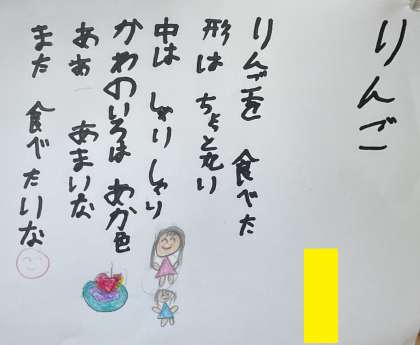 りんご
りんごを 食べた
形は ちょと丸い
中は しゃりしゃり
かわのいろは あか色
ああ あまいな
また 食べたいな